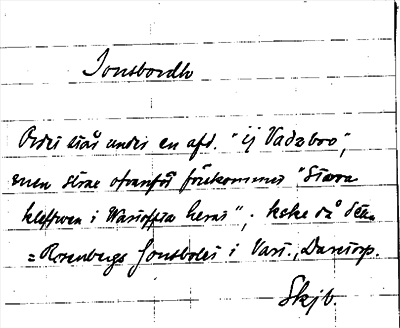 Jonsbordh
Ordet står under en afd. "ij Vadzboo",
men strax ofvanför förekommer "Stavra
kleffwen i Wartoffta herat"; kske då den
= Rosenbergs Jonsbolet i Vart., Daretorp.
Skjb.